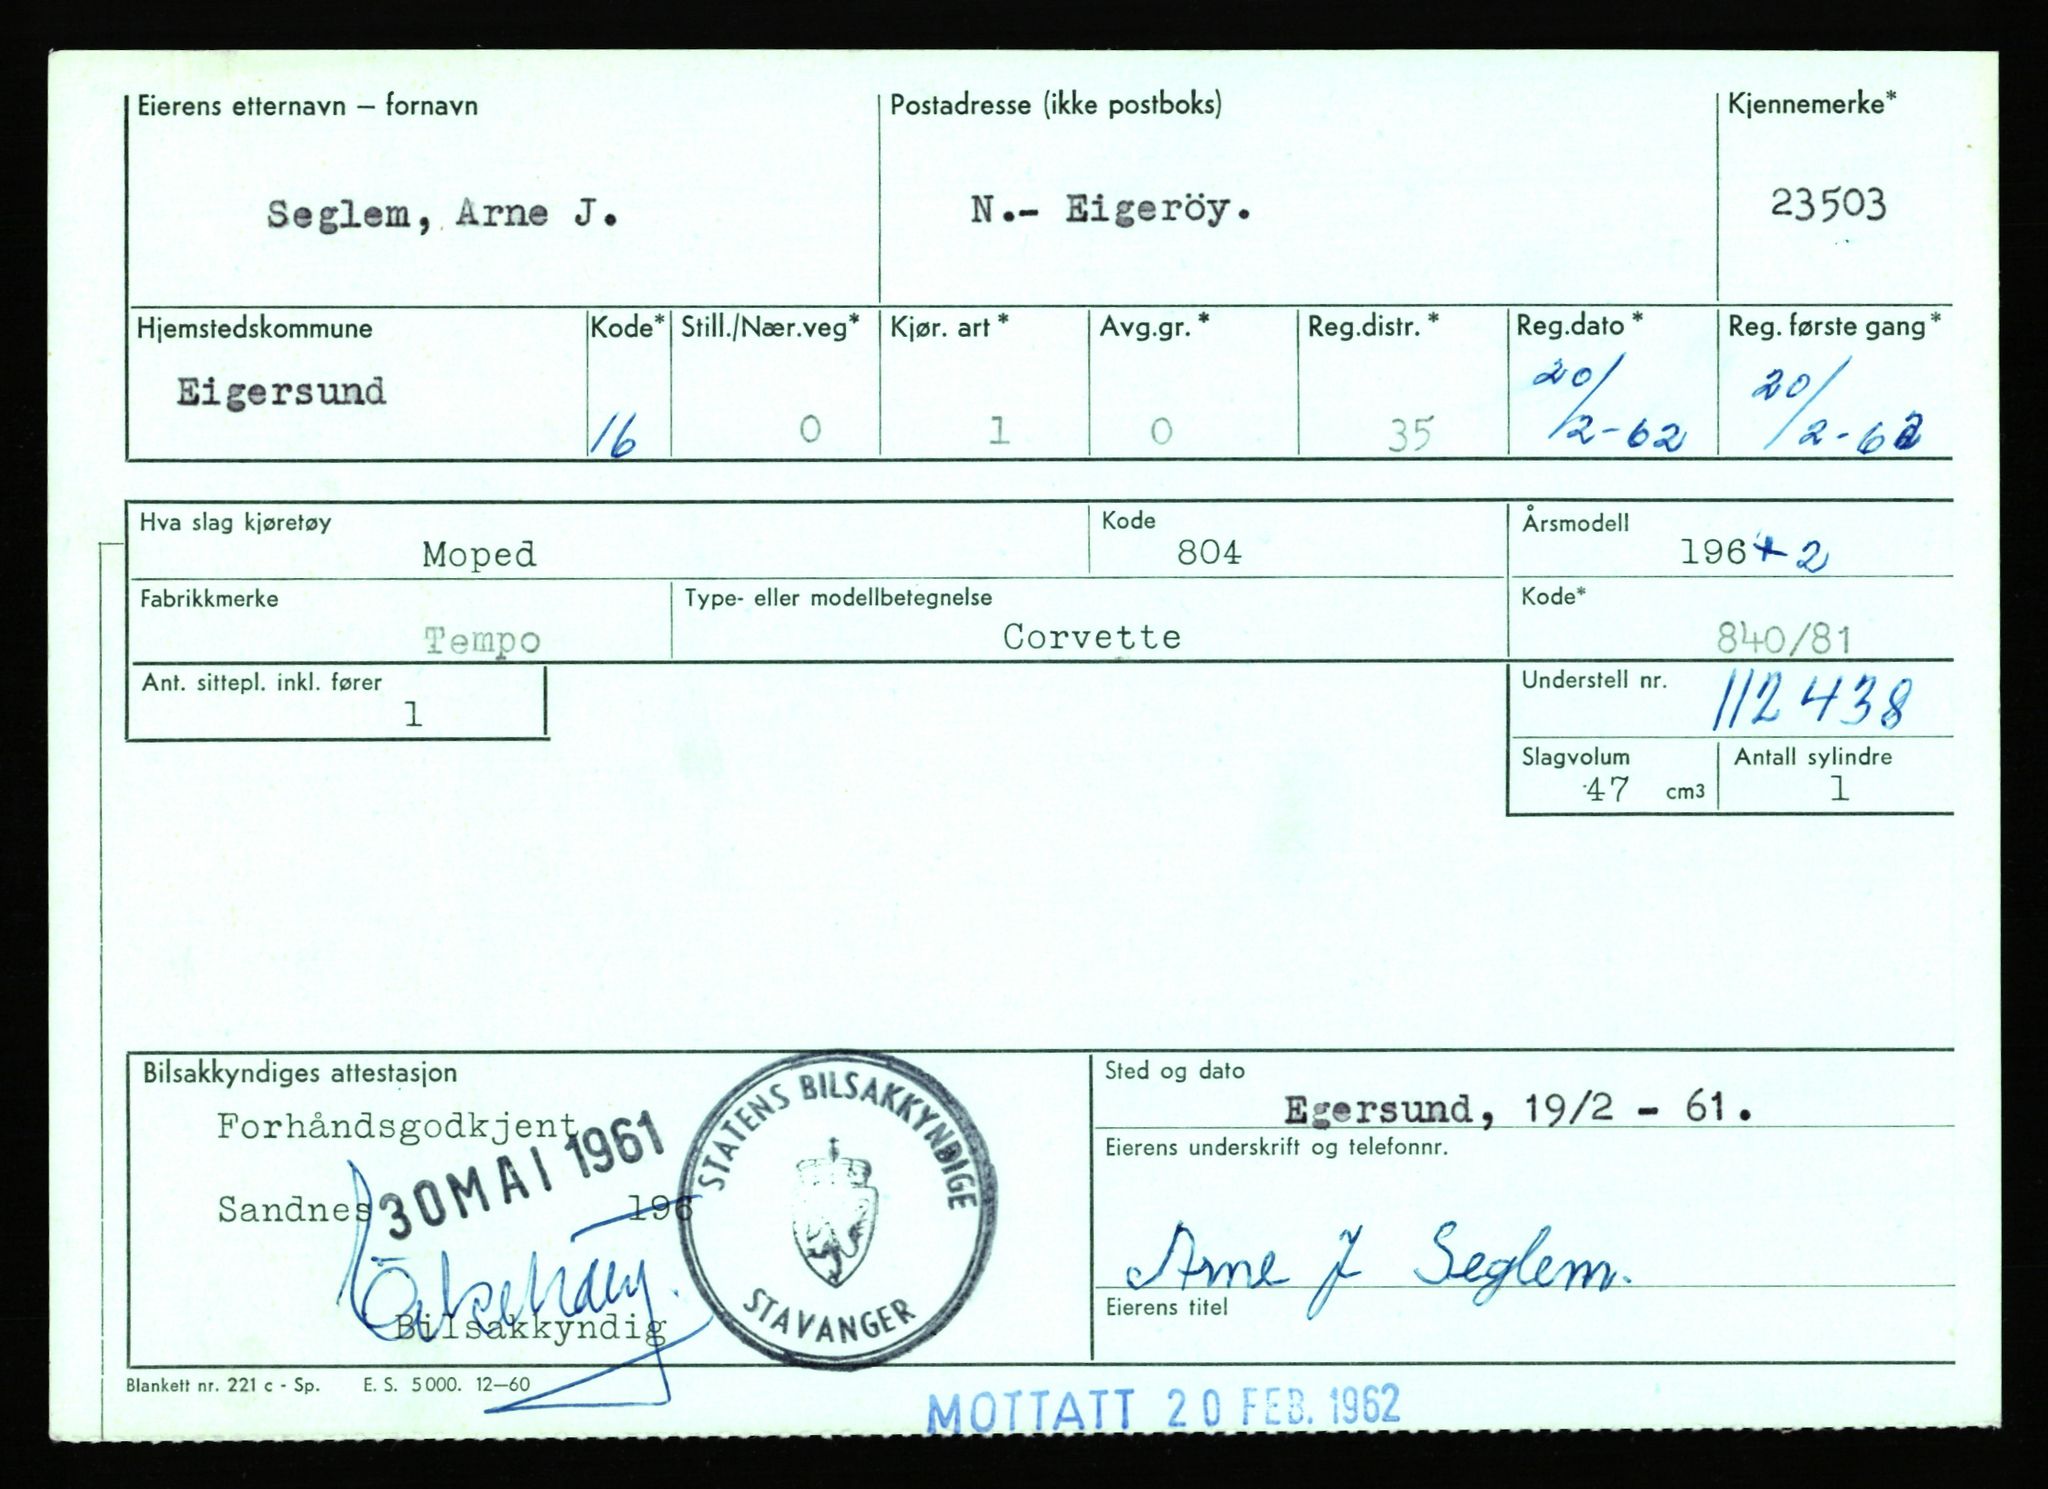 Eierens etternavn – fornavn
Postadresse (ikke postboks)
Kjennemerke*
Seglem, Arne J.
N.- Eigeröy.
23503
Hjemstedskommune
Kode*
Still./Nær.veg*
Kjør. art*
Avg.gr.*
Reg.distr.*
Reg.dato*
Reg. første gang*
Eigersund
16
0
1
0
35
20/2-62
20/2-62
Hva slag kjøretøy
Moped
Kode
804
Årsmodell
196 2
Fabrikkmerke
Tempo
Type- eller modellbetegnelse
Corvette
Kode*
840/81
Ant. sittepl. inkl. fører
1
Understell nr.
112438
Slagvolum
47 cm3
Antall sylindre
1
Bilsakkyndiges attestasjon
Forhåndsgodkjent
30 MAI 1961
Sandnes 196
Bilsakkyndig
STATENS BILSAKKYNDIGE
STAVANGER
Sted og dato
Egersund, 19/2 - 61.
Eierens underskrift og telefonnr.
Arne J Seglem.
Eierens titel
Blankett nr. 221 c - Sp. E. S. 5000. 12–60
MOTTATT 20 FEB. 1962